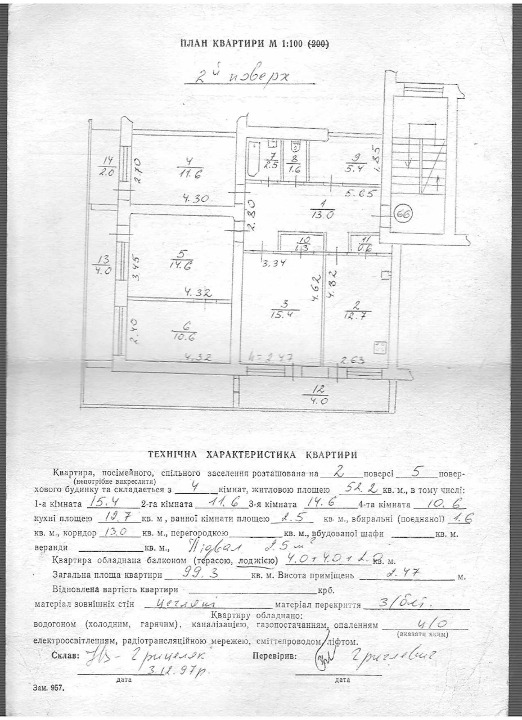 ПЛАН КВАРТИРИ М 1:100 (200)
2й поверх
14
2.0
2.70
4
11.6
4.30
7
2.5
8
1.6
9
5.4
2.85
5.65
1
13.0
2.80
66
13
4.0
3.45
5
14.6
4.32
10
1.3
11
0.6
3.34
4.62
4.82
3
15.4
2
12.7
2.40
6
10.6
4.32
h=2.47
2.63
12
4.0
ТЕХНІЧНА ХАРАКТЕРИСТИКА КВАРТИРИ
Квартира, посімейного, спільного заселення розташована на 2 поверсі 5 повер-
(непотрібне викреслити)
хового будинку та складається з 4 кімнат, житловою площею 52.2 кв. м., в тому числі:
1-а кімната 15.4 2-га кімната 11.6 3-я кімната 14.6 4-та кімната 10.6
кухні площею 12.7 кв. м., ванної кімнати площею 2.5 кв. м., вбиральні (поєднаної) 1.6
кв. м., коридор 13.0 кв. м., перегородкою кв. м., вбудованої шафи кв. м.
веранди кв. м., Підвал 2.5 м
Квартира обладнана балконом (терасою, лоджією) 4.0+4.0+2.0 кв. м.
Загальна площа квартири 99.3 кв. м. Висота приміщень 2.47 м.
Відновлена вартість квартири крб.
матеріал зовнішніх стін цегляні матеріал перекриття з/бет.
Квартиру обладнано:
водогоном (холодним, гарячим), каналізацією, газопостачанням, опаленням ц/о
(вказати яким)
електроосвітленням, радіотрансляційною мережею, сміттєпроводом ліфтом.
Склав: Перевірив:
3.12.97р.
дата дата
Зам. 957.